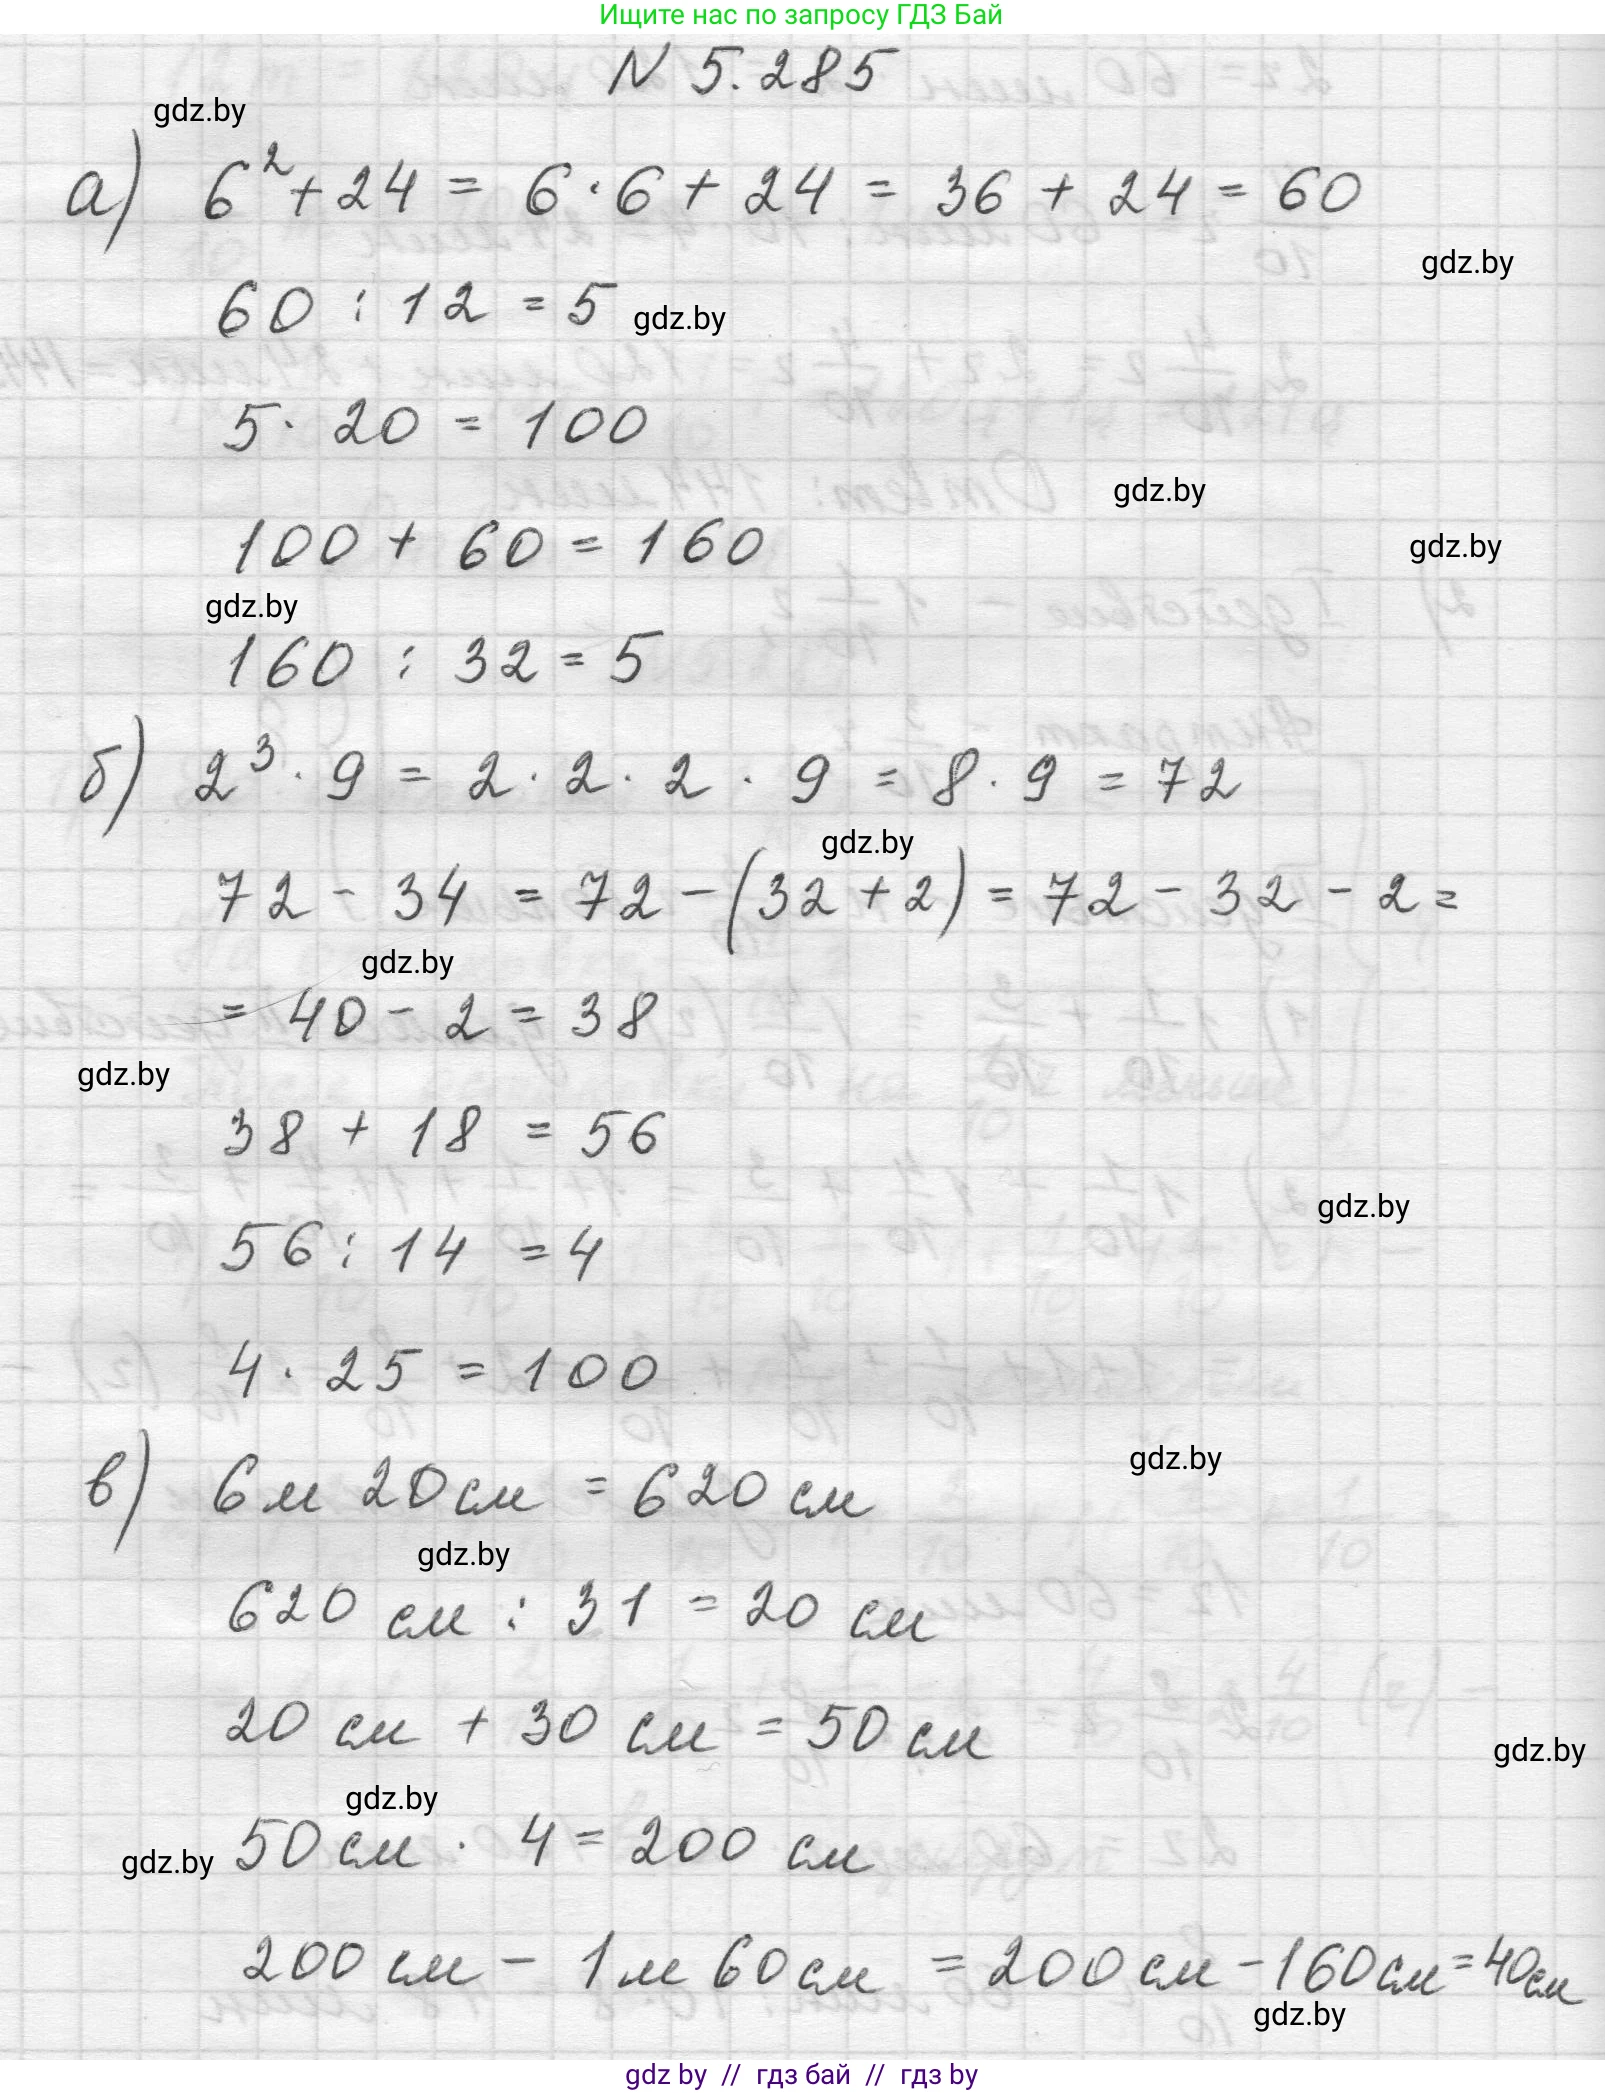 Ищите нас по запросу ГДЗ Бай
N 5.285
gdz.by
а) 6² + 24 = 6 · 6 + 24 = 36 + 24 = 60
gdz.by
60 : 12 = 5
gdz.by
5 · 20 = 100
gdz.by
100 + 60 = 160
gdz.by
gdz.by
160 : 32 = 5
б) 2³ · 9 = 2 · 2 · 2 · 9 = 8 · 9 = 72
gdz.by
72 - 34 = 72 - (32 + 2) = 72 - 32 - 2 =
gdz.by
= 40 - 2 = 38
gdz.by
38 + 18 = 56
gdz.by
56 : 14 = 4
4 · 25 = 100
gdz.by
в) 6 м 20 см = 620 см
gdz.by
620 см : 31 = 20 см
20 см + 30 см = 50 см
gdz.by
gdz.by
50 см · 4 = 200 см
gdz.by
200 см - 1 м 60 см = 200 см - 160 см = 40 см
gdz.by
gdz by // гдз бай // gdz by